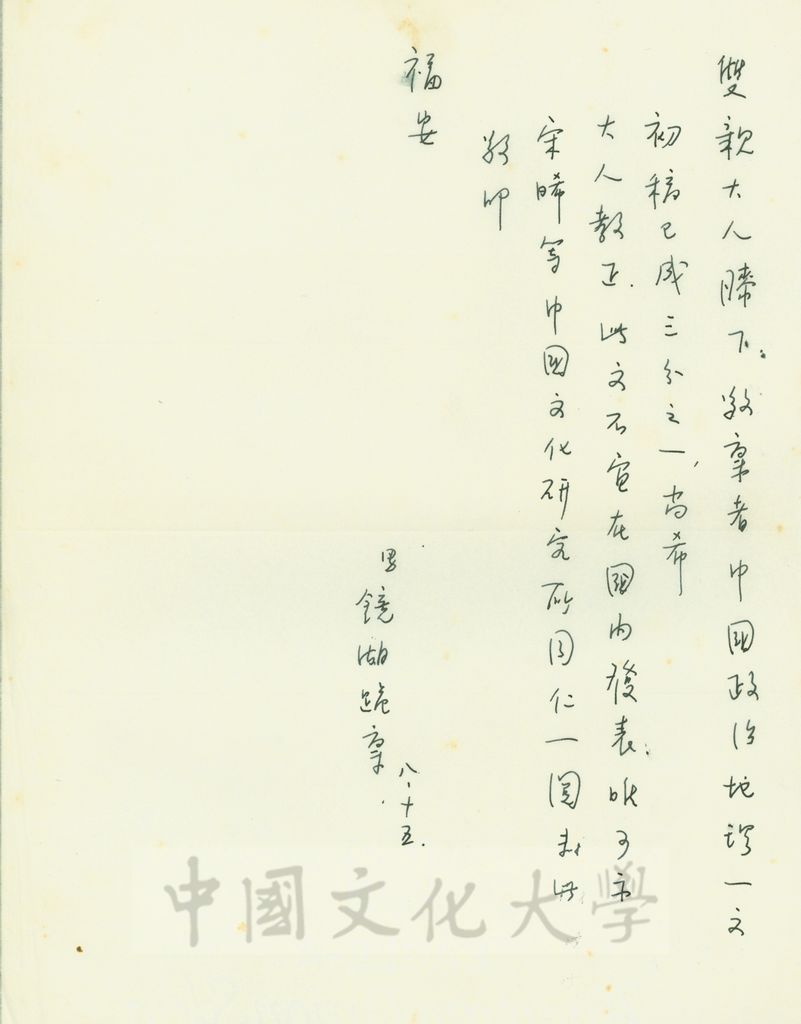 雙親大人膝下:敬稟者中國政治地理一文
初稿已成三分之一,尚希
大人教正.此文不宜在國內發表.唯可示
宋晞等中國文化研究所同仁一閱肅此
敬叩
福安
男 鏡湖跪稟
八.十五.
中國文化大學